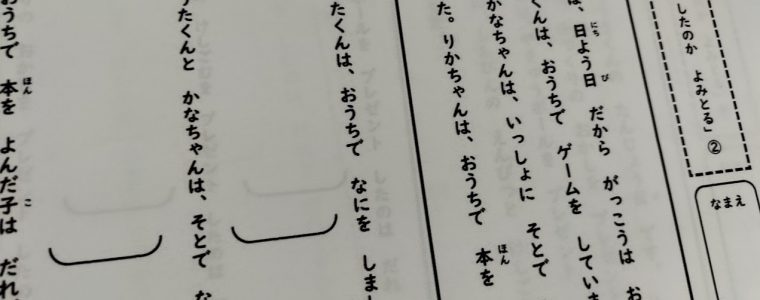 したのか よみとる」②
なまえ
は、日よう日 だから がっこうは お
くんは、おうちで ゲームを していま
かなちゃんは、いっしょに そとで
た。りかちゃんは、おうちで 本を
たくんは、おうちで なにを しまし
うたくんと かなちゃんは、そとで な
おうちで 本を よんだ 子は だれ